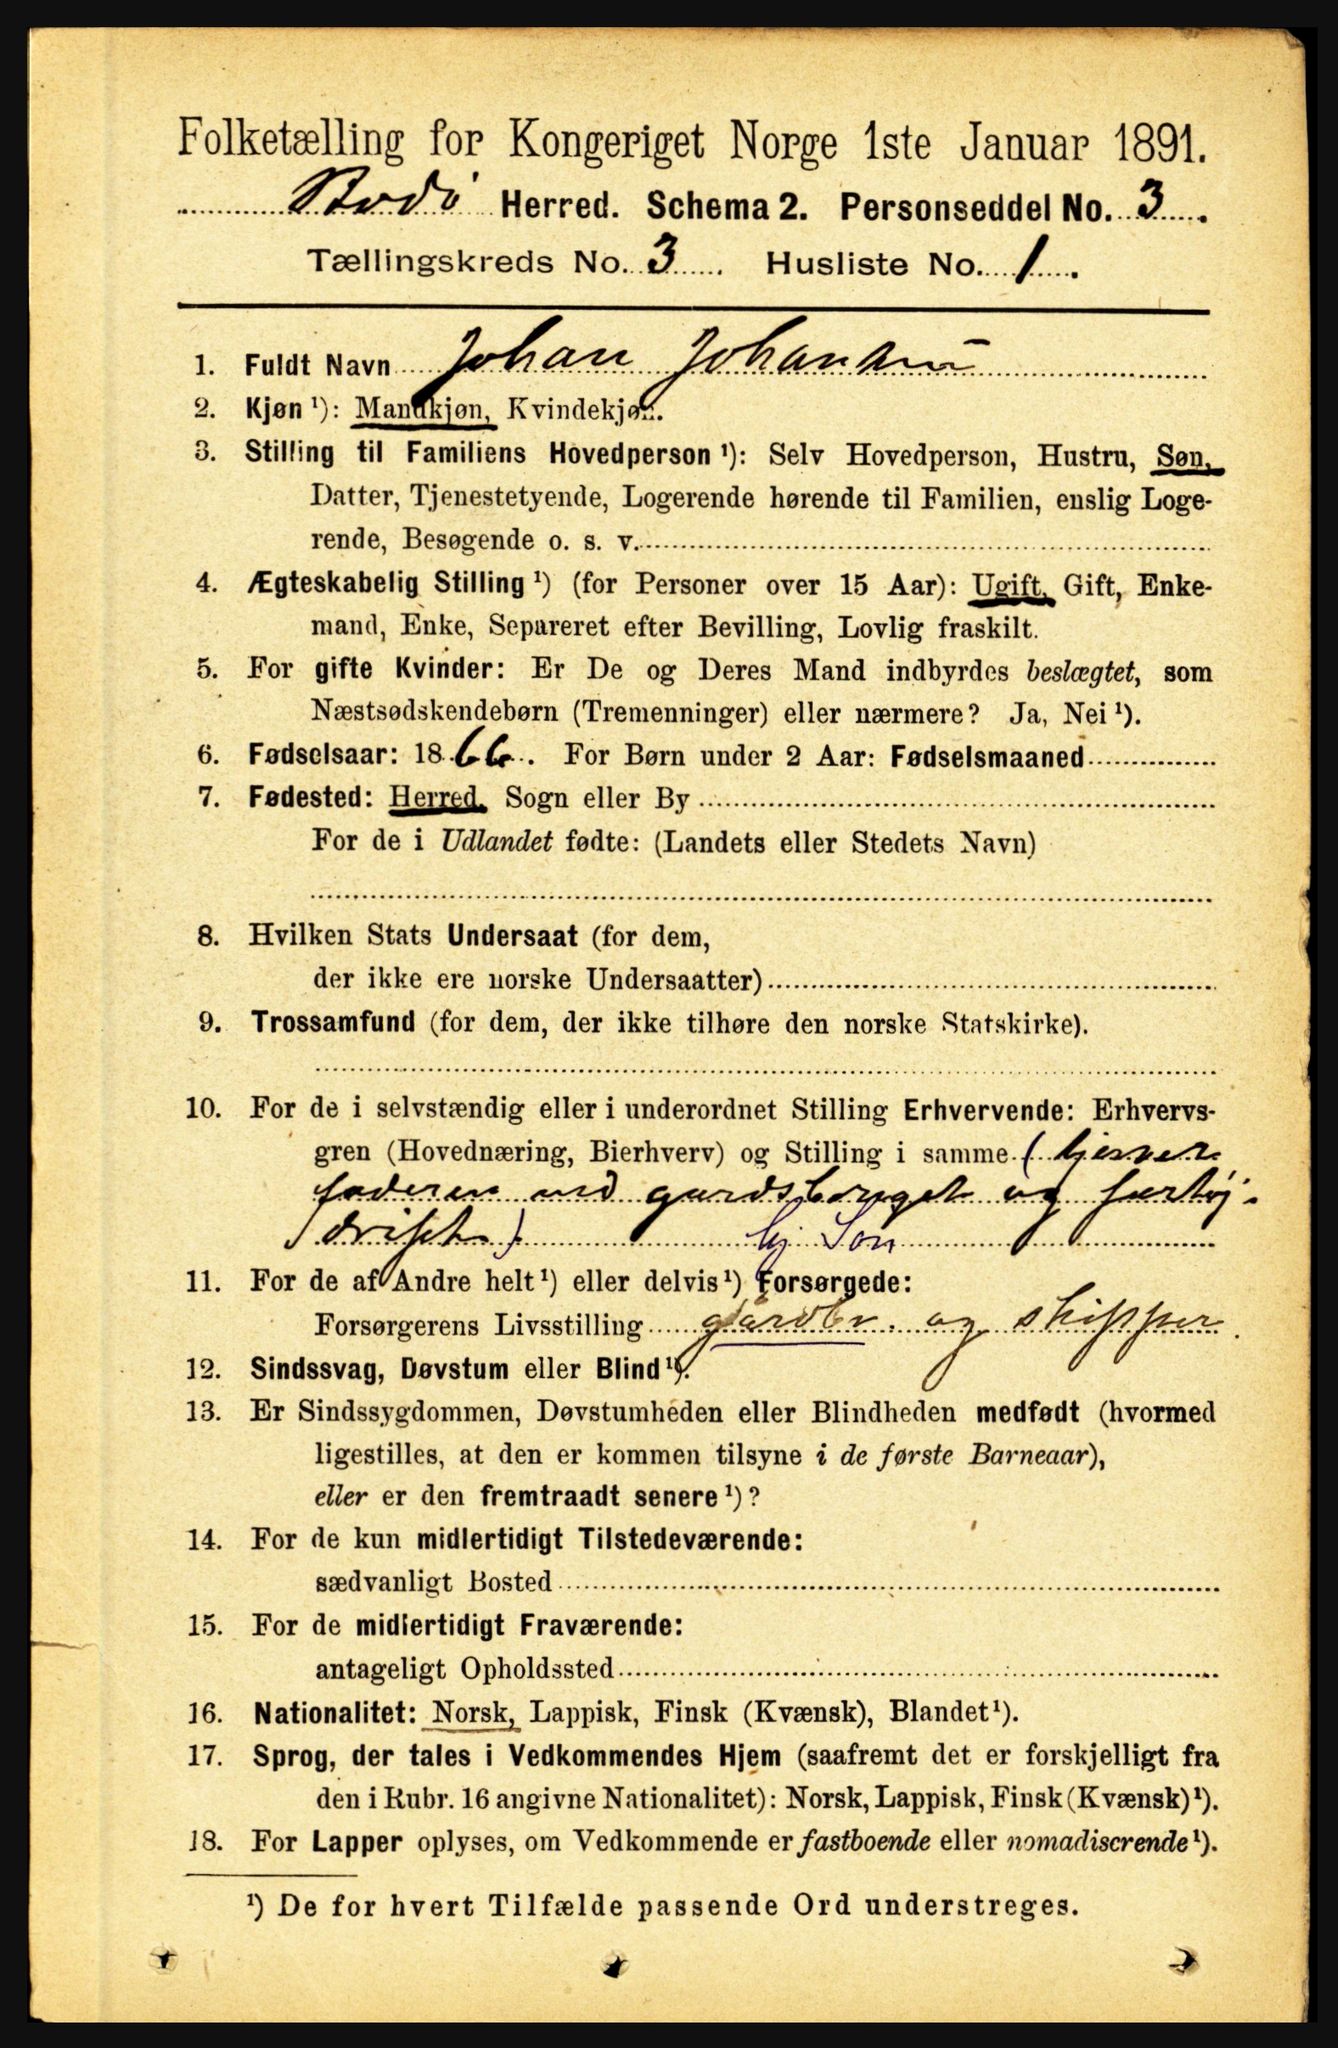 Folketælling for Kongeriget Norge 1ste Januar 1891.
Bodø Herred. Schema 2. Personseddel No. 3
Tællingskreds No. 3 Husliste No. 1
1. Fuldt Navn Johan Johansen
2. Kjøn ¹): Mandkjøn, Kvindekjøn.
3. Stilling til Familiens Hovedperson ¹): Selv Hovedperson, Hustru, Søn,
Datter, Tjenestetyende, Logerende hørende til Familien, enslig Loge-
rende, Besøgende o. s. v.
4. Ægteskabelig Stilling ¹) (for Personer over 15 Aar): Ugift, Gift, Enke-
mand, Enke, Separeret efter Bevilling, Lovlig fraskilt.
5. For gifte Kvinder: Er De og Deres Mand indbyrdes beslægtet, som
Næstsødskendebørn (Tremenninger) eller nærmere? Ja, Nei ¹).
6. Fødselsaar: 1866. For Børn under 2 Aar: Fødselsmaaned
7. Fødested: Herred, Sogn eller By
For de i Udlandet fødte: (Landets eller Stedets Navn)
8. Hvilken Stats Undersaat (for dem,
der ikke ere norske Undersaatter)
9. Trossamfund (for dem, der ikke tilhøre den norske Statskirke).
10. For de i selvstændig eller i underordnet Stilling Erhvervende: Erhvervs-
gren (Hovednæring, Bierhverv) og Stilling i samme (hjelper
faderen med gardsbruget og fartøj-
drift) hj Søn
11. For de af Andre helt ¹) eller delvis ¹) Forsørgede:
Forsørgerens Livsstilling gårdbr. og skipper
12. Sindssvag, Døvstum eller Blind ¹).
13. Er Sindssygdommen, Døvstumheden eller Blindheden medfødt (hvormed
ligestilles, at den er kommen tilsyne i de første Barneaar),
eller er den fremtraadt senere ¹)?
14. For de kun midlertidigt Tilstedeværende:
sædvanligt Bosted
15. For de midlertidigt Fraværende:
antageligt Opholdssted
16. Nationalitet: Norsk, Lappisk, Finsk (Kvænsk), Blandet ¹).
17. Sprog, der tales i Vedkommendes Hjem (saafremt det er forskjelligt fra
den i Rubr. 16 angivne Nationalitet): Norsk, Lappisk, Finsk (Kvænsk) ¹).
18. For Lapper oplyses, om Vedkommende er fastboende eller nomadiserende ¹).
¹) De for hvert Tilfælde passende Ord understreges.